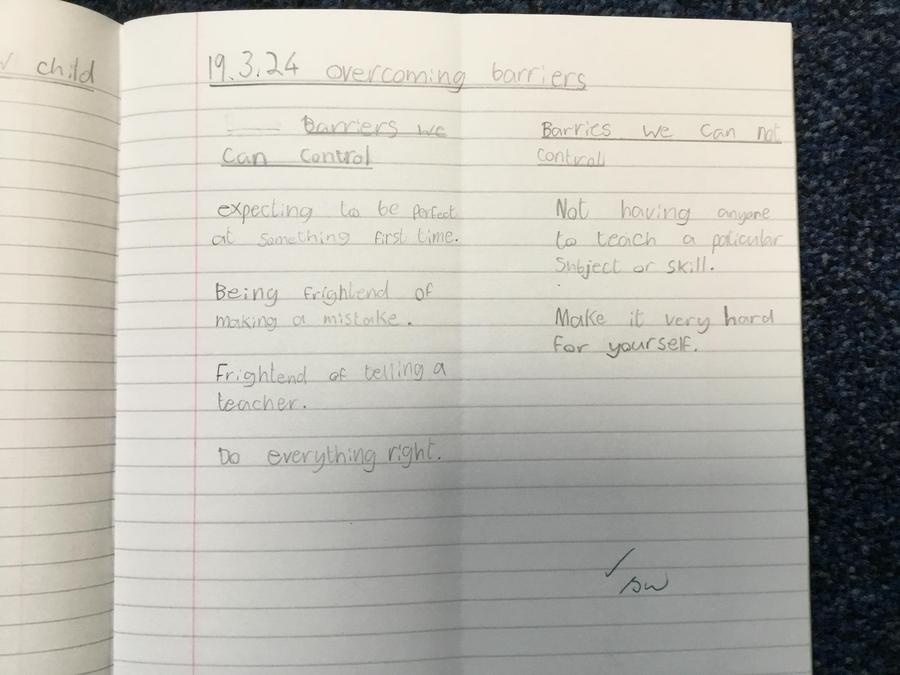 child
19.3.24 overcoming barriers
Barriers we
Can Control
expecting to be perfect
at something first time.
Being frightend of
making a mistake.
Frightend of telling a
teacher.
Do everything right.
Barries we can not
control
Not having anyone
to teach a paticular
Subject or skill.
Make it very hard
for yourself.